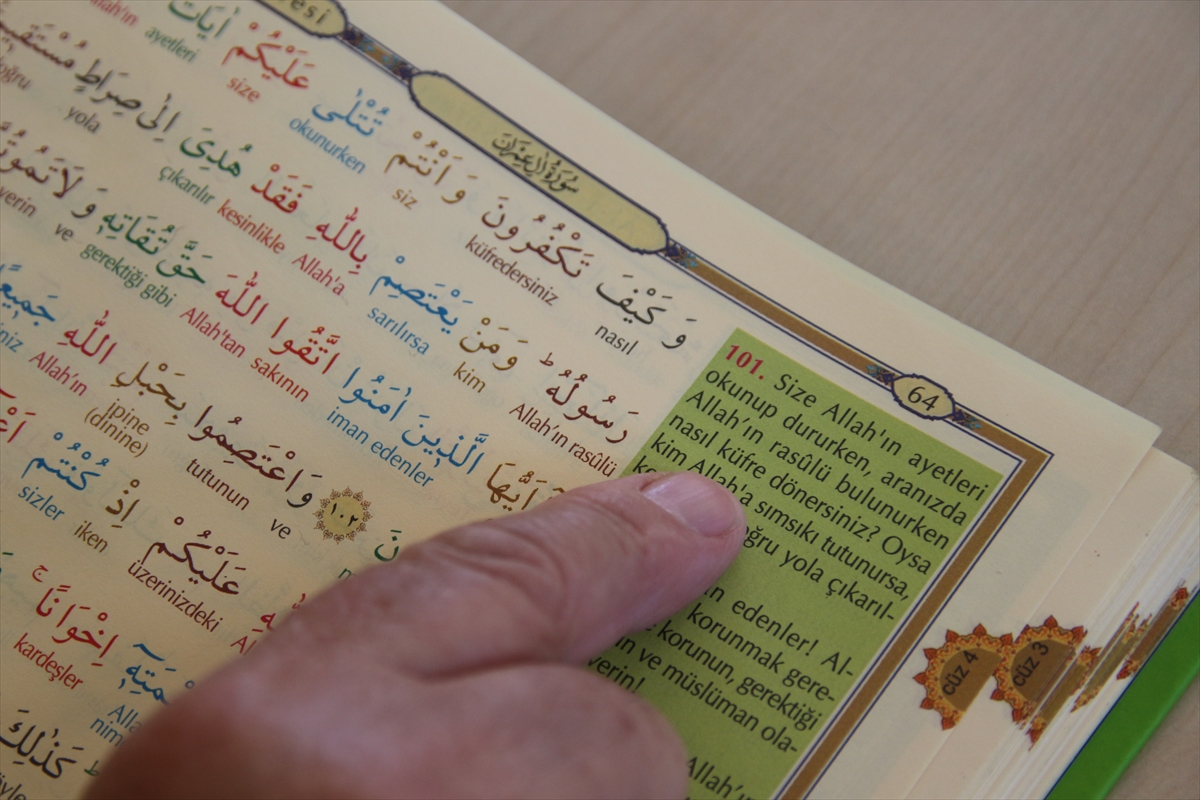 سُورَةُ اٰلِ عِمْرٰنَ
64
وَ كَيْفَ تَكْفُرُونَ وَ اَنْتُمْ تُتْلٰى عَلَيْكُمْ اٰيَاتُ
nasıl küfredersiniz siz okunurken size ayetleri
رَسُولُهُ وَمَنْ يَعْتَصِمْ بِاللّٰهِ فَقَدْ هُدِىَ اِلٰى صِرَاطٍ
Allah'ın rasûlü kim sarılırsa Allah'a kesinlikle çıkarılır yola
اَيُّهَا الَّذِينَ اٰمَنُوا اتَّقُوا اللّٰهَ حَقَّ تُقَاتِهٖ وَ
iman edenler sakının Allah'tan gerektiği gibi ve
١٠٢ وَاعْتَصِمُوا بِحَبْلِ اللّٰهِ
ve tutunun ipine (dinine) Allah'ın
عَلَيْكُمْ اِذْ كُنْتُمْ
üzerinizdeki iken sizler
اِخْوَانًا
kardeşler
كَذٰلِكَ
101. Size Allah'ın ayetleri
okunup dururken, aranızda
Allah'ın rasûlü bulunurken
nasıl küfre dönersiniz? Oysa
kim Allah'a sımsıkı tutunursa,
yola çıkarıl-
edenler! Al-
korunmak gere-
korunun, gerektiği
ve müslüman ola-
Allah'ın
cüz 4
cüz 3